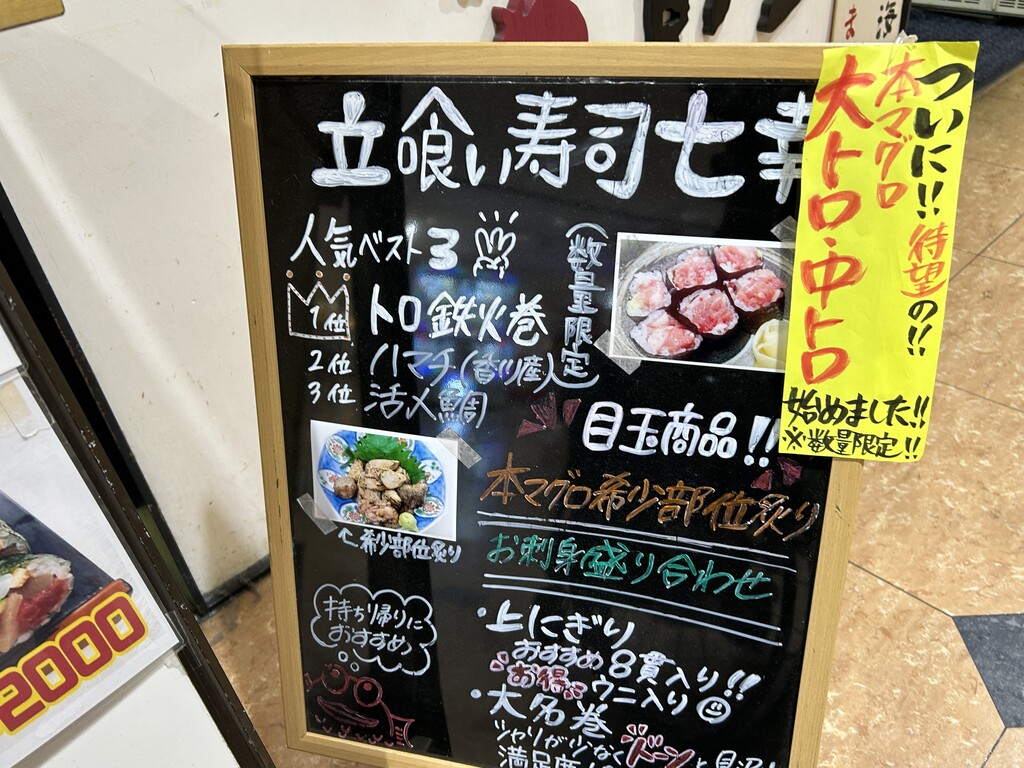 立喰い寿司七幸
人気ベスト3
1位 トロ鉄火巻
2位 ハマチ(香川産)
3位 活〆鯛
(数量限定)
ついに!!待望の!!
本マグロ
大トロ・中トロ
始めました!!
※数量限定!!
目玉商品!!
本マグロ希少部位炙り
お刺身盛り合わせ
↖希少部位炙り
持ち帰りに
おすすめ
・上にぎり
おすすめ8貫入り!!
お得 ウニ入り
・大名巻
シャリが少なく ドーンと
満足度
2000
海
ま